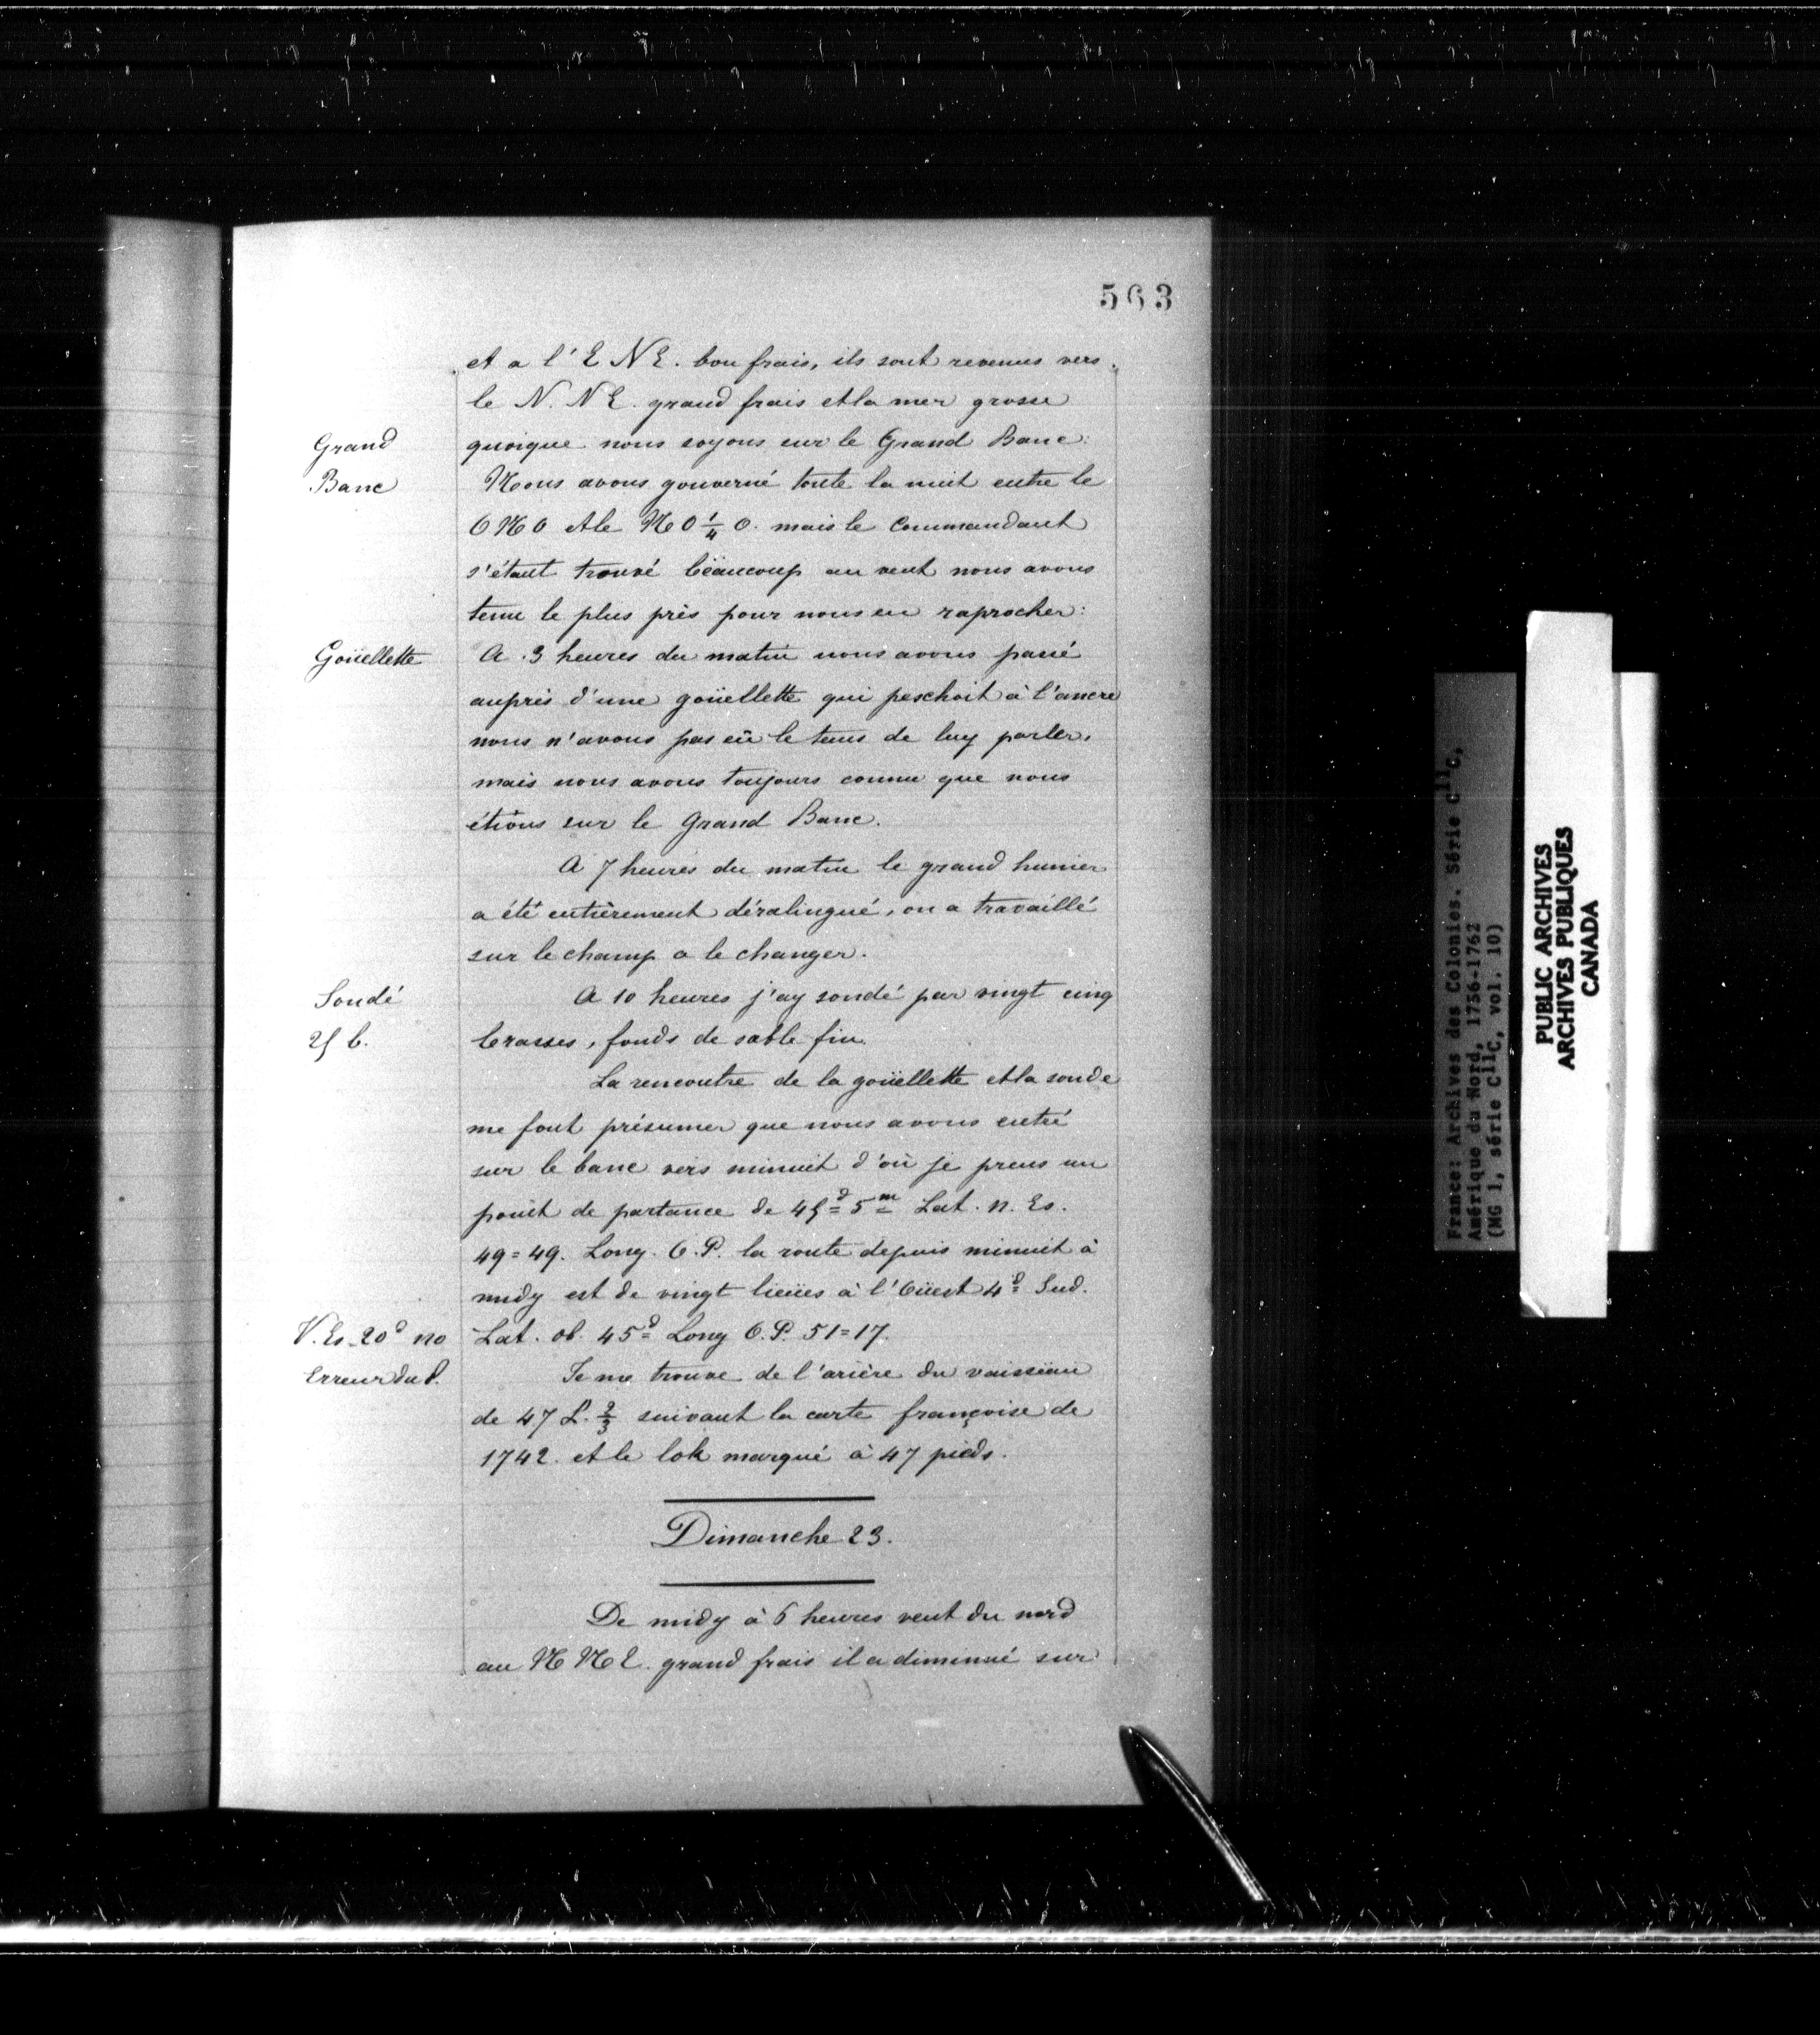 563
et a l'E NE. bon frais, ils sont revenus vers
le N. NE. grand frais et la mer grosse
Grand
quoique nous soyons sur le Grand Banc:
Banc
Nous avons gouverné toute la nuit entre le
O N O et le N O 1/4 O. mais le Commandant
s'étant trouvé béaucoup au vent nous avons
tenu le plus près pour nous en raprocher:
Goüellette
A 3 heures du matin nous avons passé
auprès d'une goüellette qui peschoit à l'ancre
nous n'avons pas eû le tems de luy parler,
mais nous avons toujours connu que nous
étiòns sur le Grand Banc.
A 7 heures du matin le grand hunier
a été entièrement déralingué, on a travaillé
sur le champ a le changer.
Sondé
A 10 heures j'ay sondé par vingt cinq
25 b.
brasses, fonds de sable fin.
La rencontre de la goüellette et la sonde
me font présumer que nous avons entré
sur le banc vers minuit d'où je prens un
point de partance de 45d= 5m Lat. n. Es.
49=49. Long. O.P. la route depuis minuit à
midy est de vingt lieües à l'Oüest 4d= Sud.
V. Es. 20d no
Lat. ob. 45d= Long O.P. 51=17.
Erreur du P.
Je me trouve de l'arière du vaisseau
de 47 L. 2/3 suivant la carte françoise de
1742. et le lok marqué à 47 pieds.
Dimanche 23.
De midy à 6 heures vent du nord
au N N E. grand frais il a diminué sur
France: Archives des Colonies. Série C11C,
Amérique du Nord, 1756-1762
(MG 1, série C11C, vol. 10)
PUBLIC ARCHIVES
ARCHIVES PUBLIQUES
CANADA